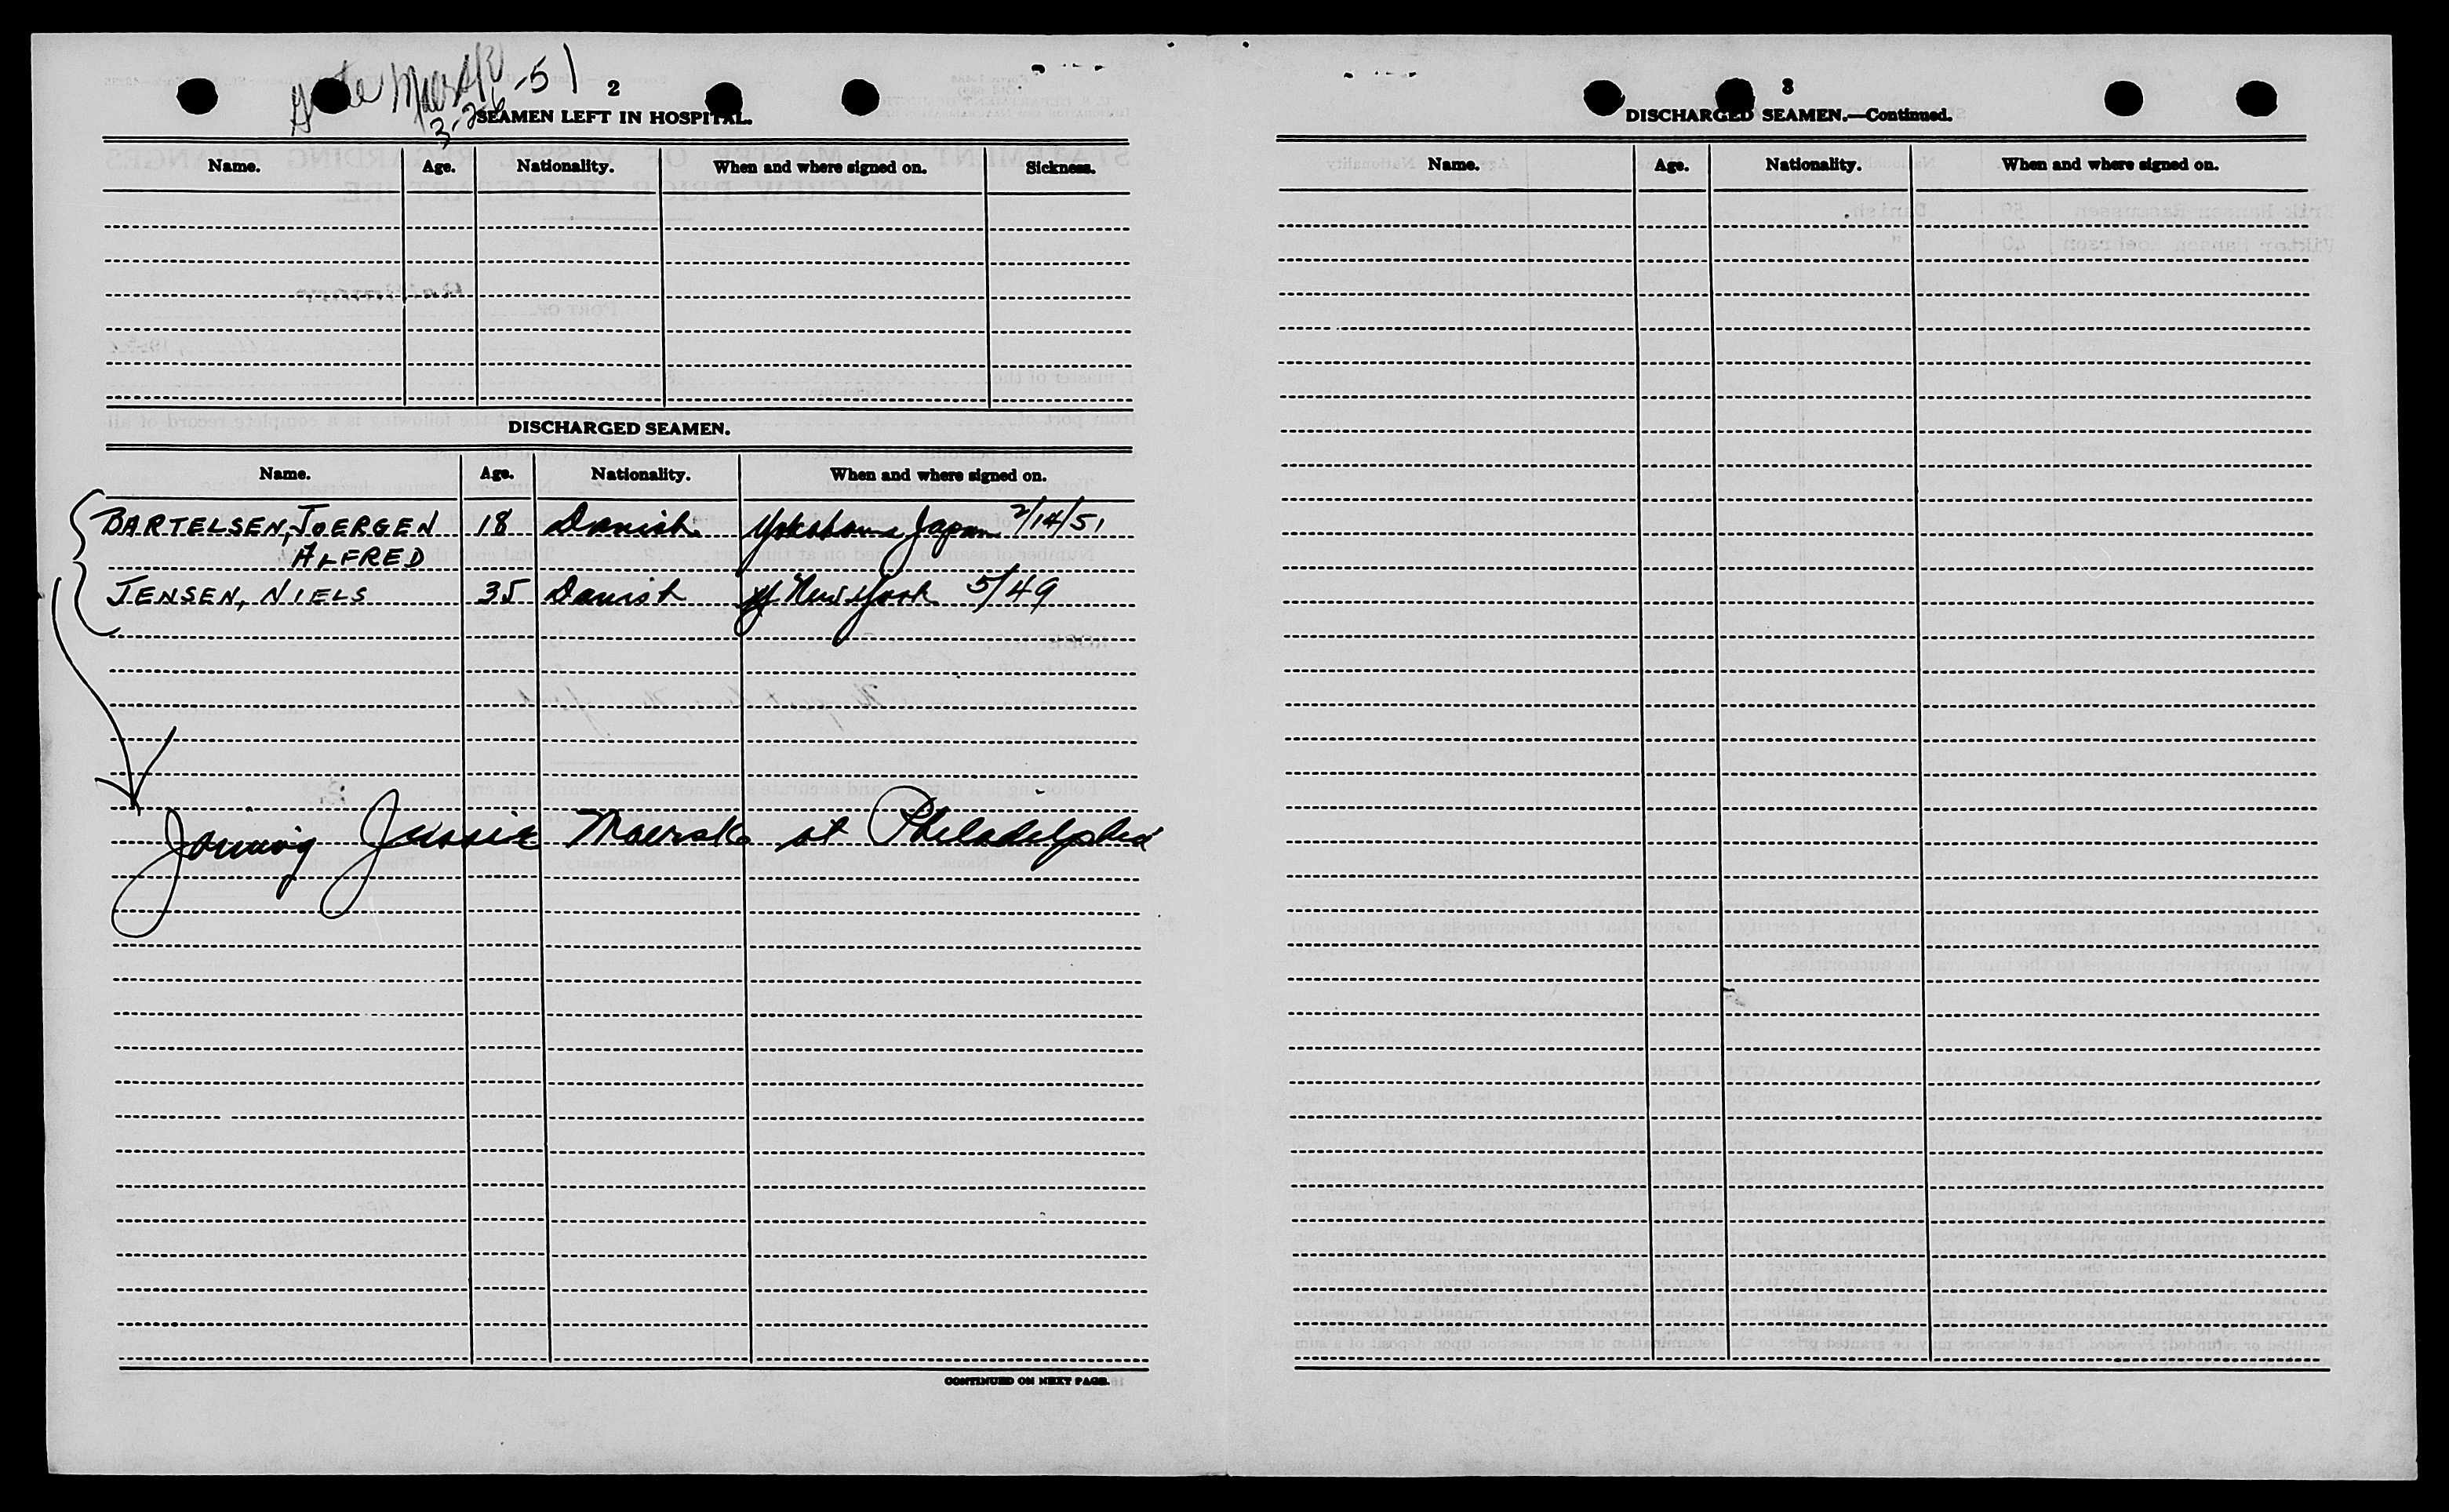 Maersk
3-26-51
2
SEAMEN LEFT IN HOSPITAL.
Name. Age. Nationality. When and where signed on. Sickness.
DISCHARGED SEAMEN.
Name. Age. Nationality. When and where signed on.
BARTELSEN, JOERGEN 18 Danish Yokohama Japan 2/14/51
ALFRED
JENSEN, NIELS 35 Danish New York 5/49
Joining Jessie Maersk at Philadelphia
CONTINUED ON NEXT PAGE.
3
DISCHARGED SEAMEN.—Continued.
Name. Age. Nationality. When and where signed on.